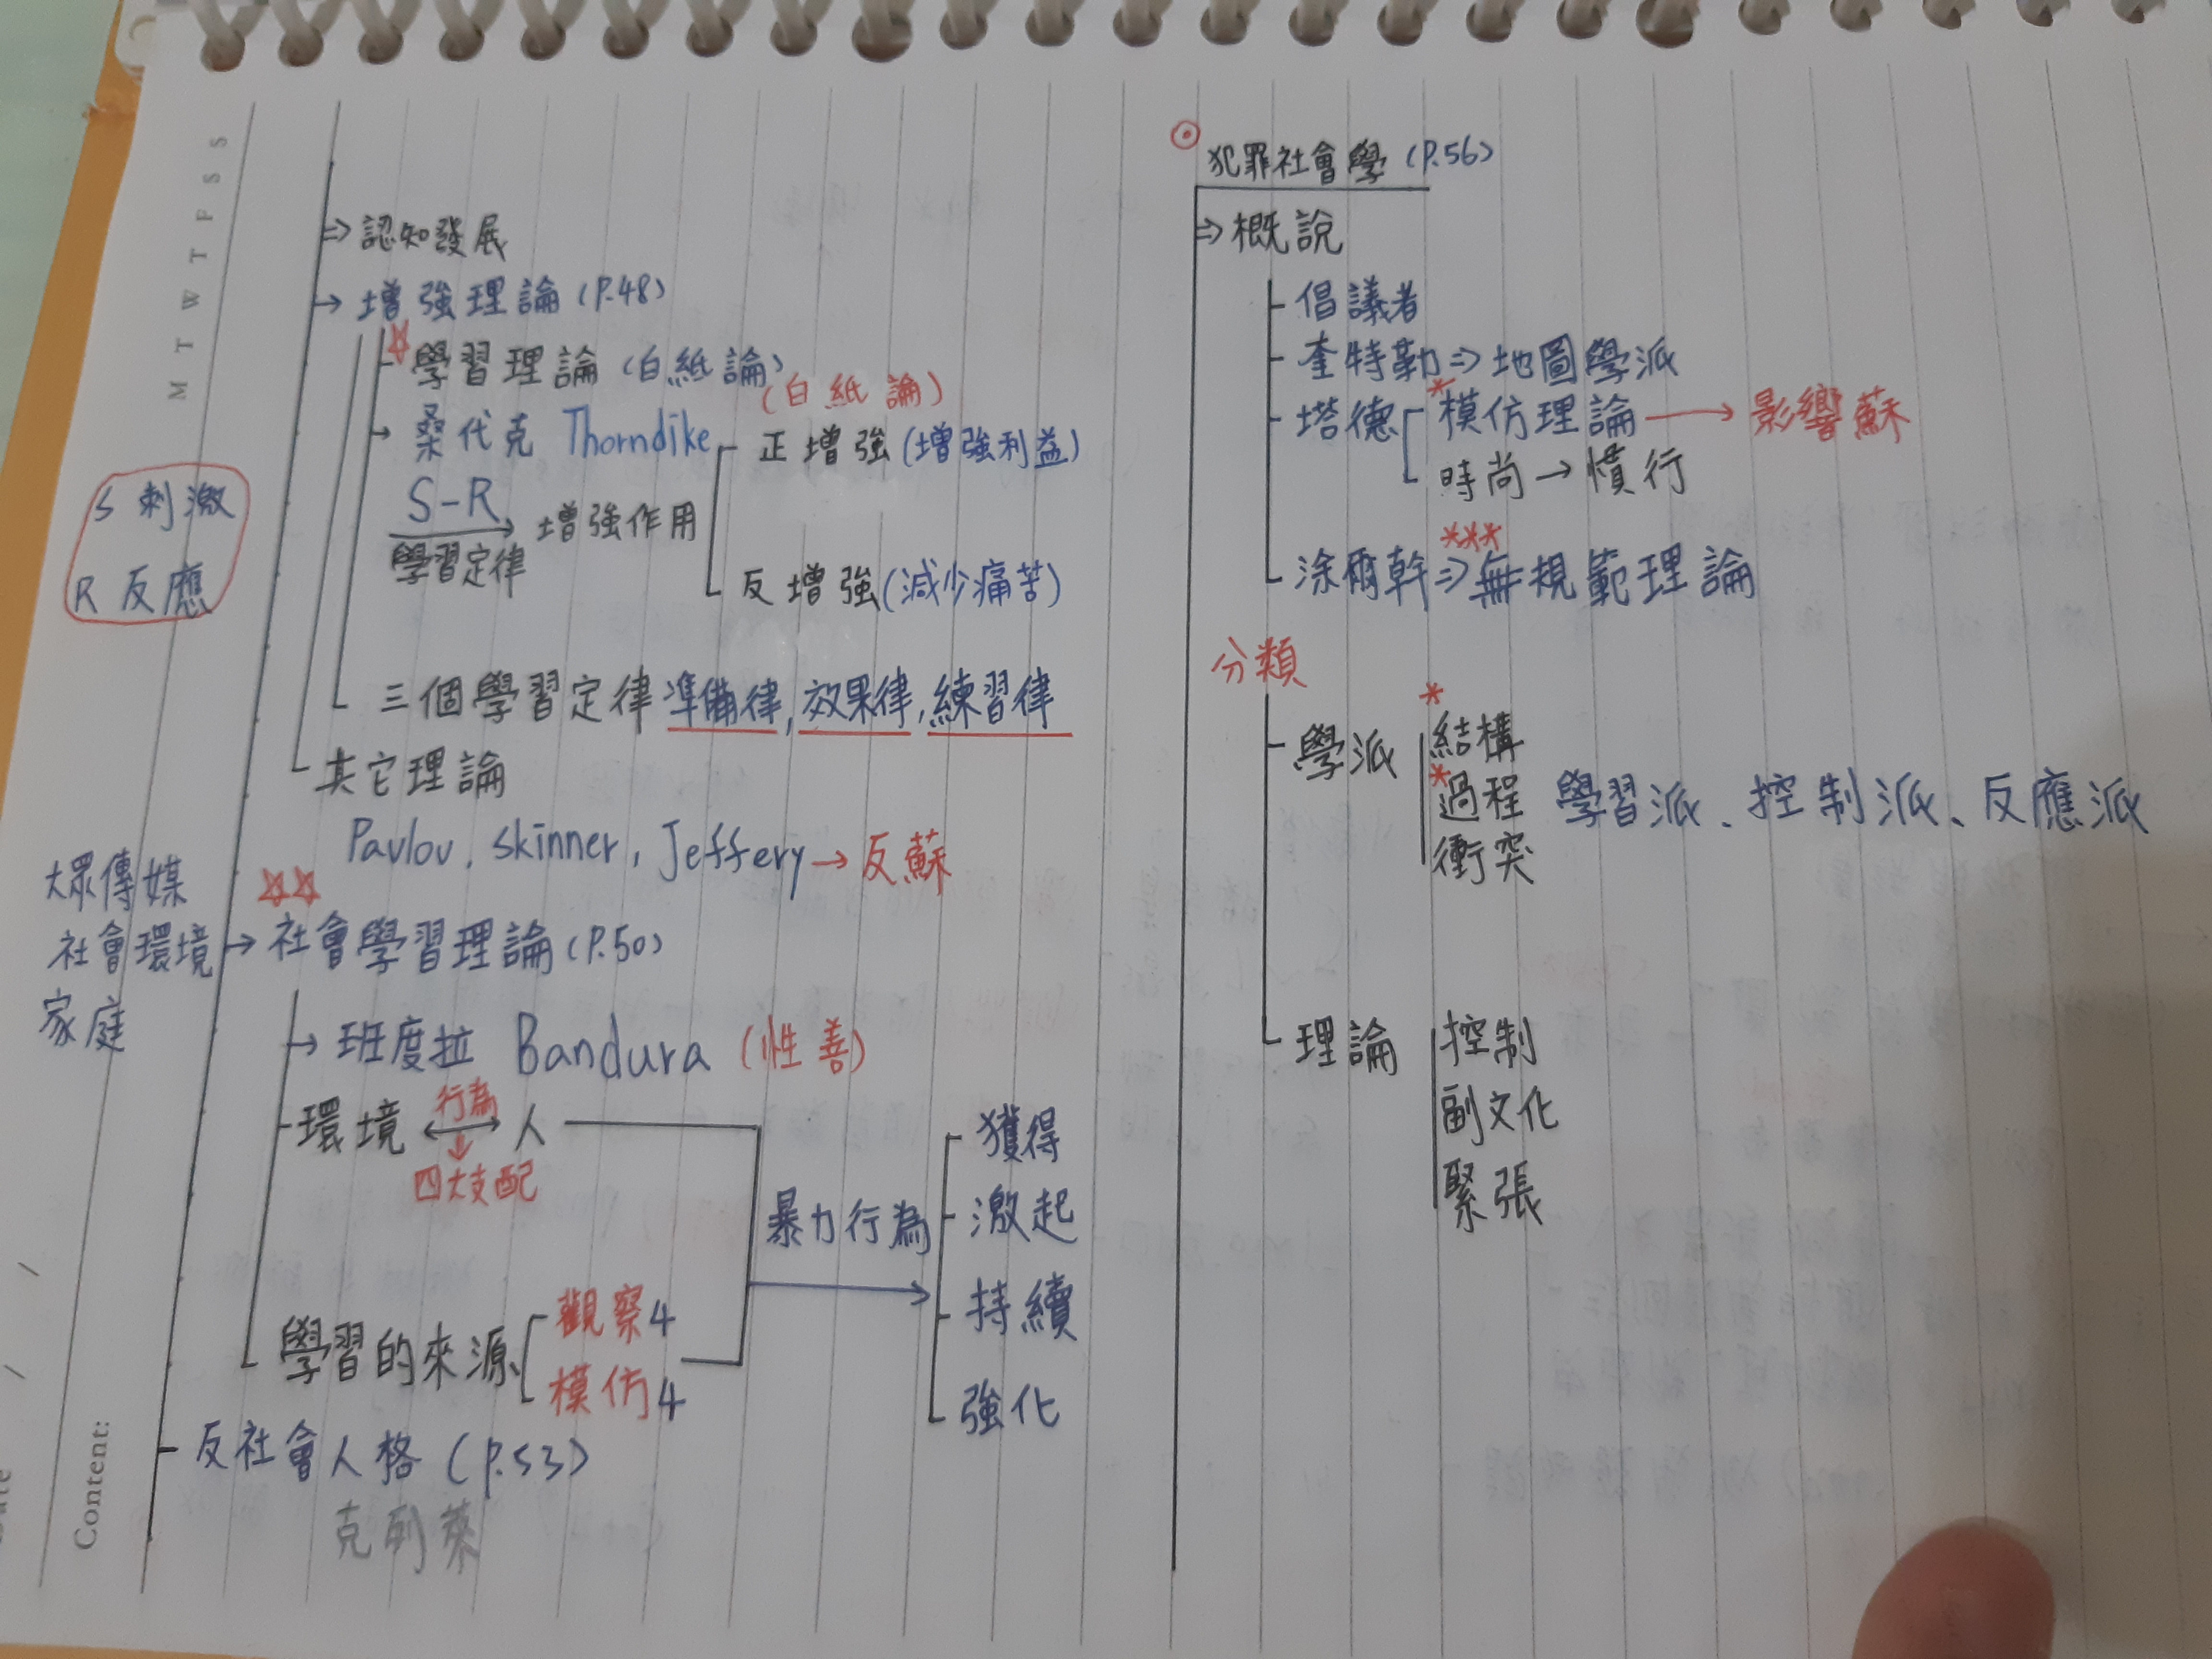 M T W T F S S
⇒ 認知發展
→ 增強理論 (P.48)
☆ 學習理論 (白紙論)
(白紙論)
→ 桑代克 Thorndike
正增強 (增強利益)
S-R → 增強作用
學習定律
反增強 (減少痛苦)
S 刺激
R 反應
三個學習定律 準備律, 效果律, 練習律
其它理論
Pavlov, skinner, Jeffery → 反蘇
大眾傳媒
社會環境
家庭
☆☆
→ 社會學習理論 (P.50)
→ 班度拉 Bandura (性善)
環境 ↔ 人
行為
↓
四大支配
暴力行為
獲得
激起
持續
強化
學習的來源
觀察4
模仿4
反社會人格 (P.53)
Content:
⊙ 犯罪社會學 (P.56)
⇒ 概說
倡議者
奎特勒 ⇒ 地圖學派
塔德 * 模仿理論 → 影響蘇
時尚 → 慣行
涂爾幹 ⇒ *** 無規範理論
分類
學派
* 結構
* 過程 學習派、控制派、反應派
衝突
理論
控制
副文化
緊張